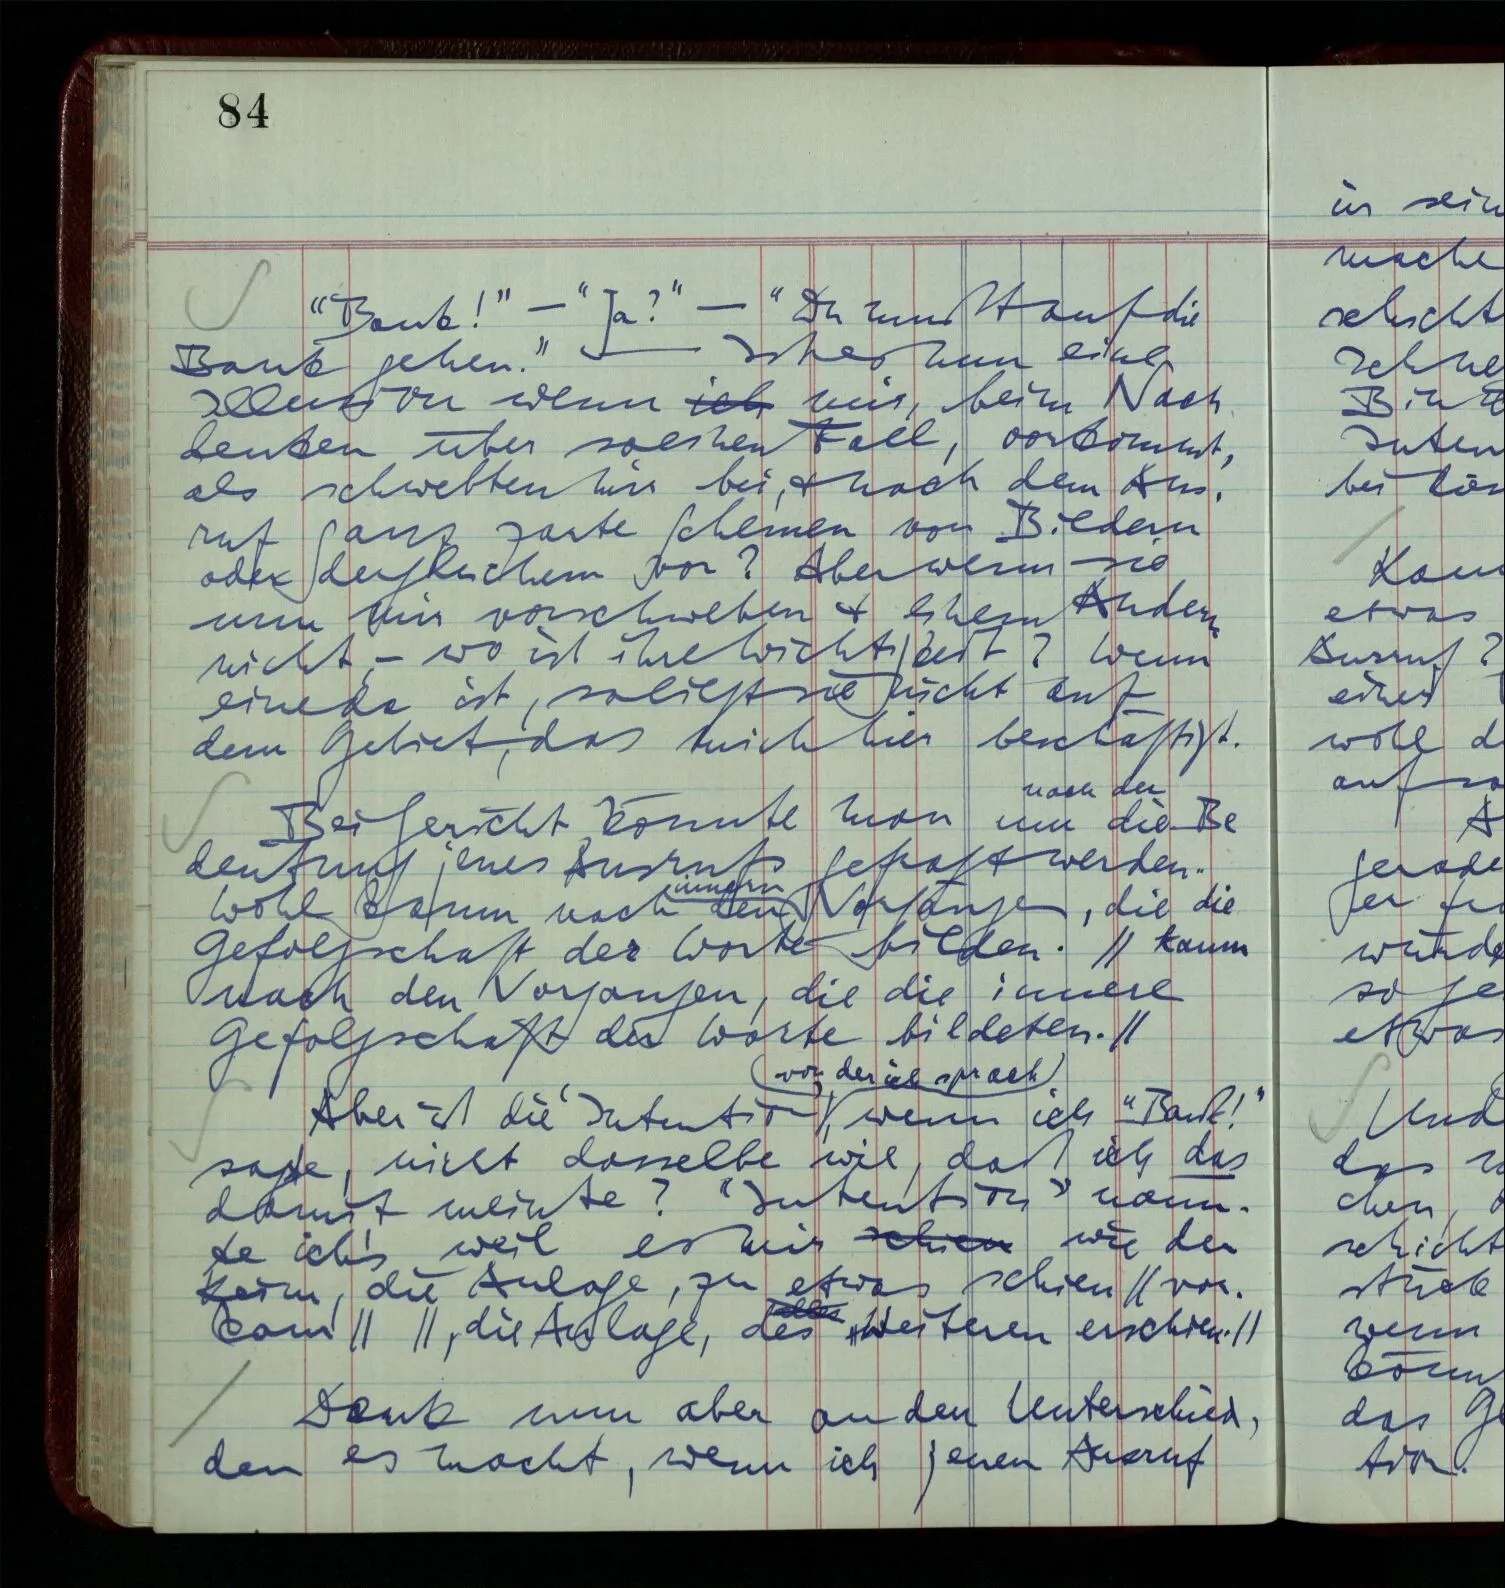 84
"Bank!" – "Ja?" – "Du mußt auf die
Bank gehen." Ist es nun eine
Illusion wenn ich mir, beim Nach
denken über solchen Fall, vorkommt,
als schwebten mir bei, & nach dem Aus-
ruf ganz zarte Schemen von Bildern
oder dergleichem vor? Aber wenn sie
nun mir vorschweben & einem Andern
nicht, – wo ist ihre Wichtigkeit? Wenn
eine da ist, so liegt sie nicht auf
dem Gebiet, das mich hier beschäftigt.
nach der
Bei Gericht könnte man um die Be
deutung jenes Ausrufs gefragt werden.
innern
Wohl kaum nach den Vorgängen, die die
Gefolgschaft der Worte bilden. // kaum
nach den Vorgängen, die die innere
Gefolgschaft der Worte bildeten.//
(von der ich sprach)
Aber ist die Intention, wenn ich "Bank!"
sage, nicht dasselbe wie, daß ich das
damit meinte? "Intention" nann-
te ich's weil es mir schien wie der
Keim, die Anlage, zu etwas schien // vor-
kam // //, die Anlage, des alles Weiteren erschien.//
Denk nun aber an den Unterschied,
den es macht, wenn ich jenen Ausruf
in sein
mache
schicht
Inten
bei
etwas
Ausruf?
einer
wohl d
auf so
A
gerade
würde
so ge
etwas
Und
das
chen,
schicht
stück
wenn
könn
das Ge
tion.